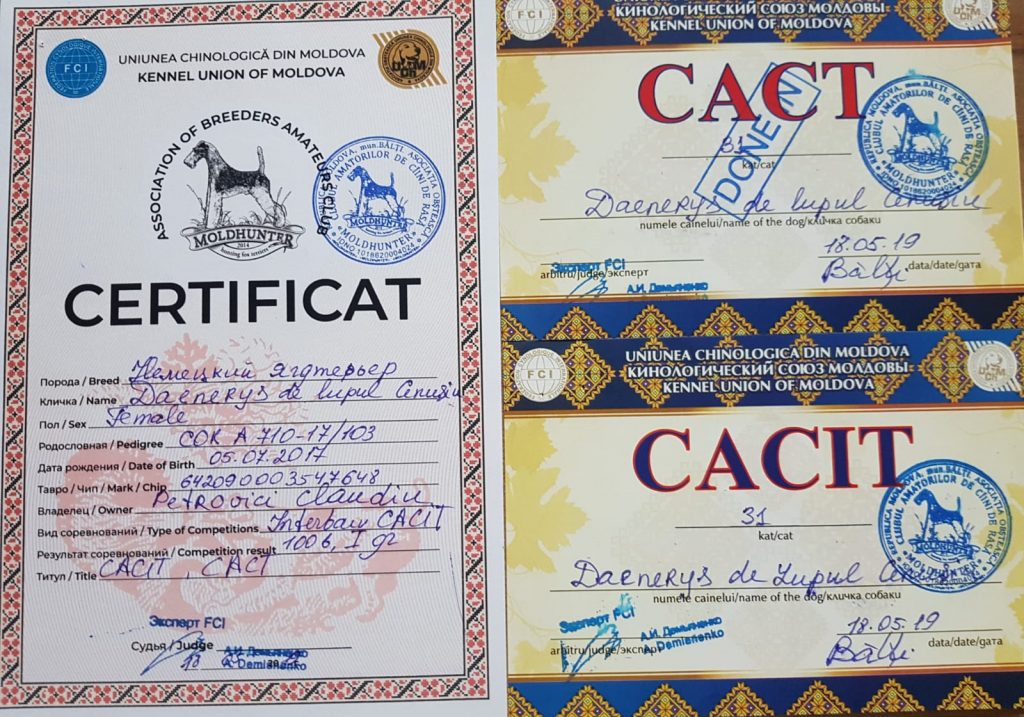 FCI
UNIUNEA CHINOLOGICĂ DIN MOLDOVA
KENNEL UNION OF MOLDOVA
ASSOCIATION OF BREEDERS AMATEURS CLUB
MOLDHUNTER
2014
REPUBLICA MOLDOVA, mun. BĂLŢI, ASOCIAŢIA OBŞTEASCĂ
CLUBUL AMATORILOR DE CÎINI DE RASĂ
MOLDHUNTER
IDNO 1018620004024
CERTIFICAT
Порода / Breed Немецкий ягдтерьер
Кличка / Name Daenerys de Lupul Cenusiu
Пол / Sex Female
Родословная / Pedigree COR A 710-17/103
Дата рождения / Date of Birth 05.07.2017
Тавро / Чип / Mark / Chip 642090003547648
Владелец / Owner Petrovici Claudiu
Вид соревнований / Type of Competitions Interbau CACIT
Результат соревнований / Competition result 100 б, I gr
Титул / Title CACIT, CACT
Эксперт FCI
Судья / Judge А.И. Демьяненко
A. Demienenko
КИНОЛОГИЧЕСКИЙ СОЮЗ МОЛДОВЫ
KENNEL UNION OF MOLDOVA
CACT
DONE IN
31
kat/cat
REPUBLICA MOLDOVA, mun. BĂLŢI, ASOCIAŢIA OBŞTEASCĂ
CLUBUL AMATORILOR DE CÎINI DE RASĂ
MOLDHUNTER
IDNO 1018620004024
Daenerys de Lupul Cenusiu
numele cainelui/name of the dog/кличка собаки
18.05.19
Эксперт FCI
Bălţi data/date/дата
arbitru/judge/эксперт
А.И. Демьяненко
FCI
UNIUNEA CHINOLOGICA DIN MOLDOVA
КИНОЛОГИЧЕСКИЙ СОЮЗ МОЛДОВЫ
KENNEL UNION OF MOLDOVA
CACIT
31
kat/cat
REPUBLICA MOLDOVA, mun. BĂLŢI, ASOCIAŢIA OBŞTEASCĂ
CLUBUL AMATORILOR DE CÎINI DE RASĂ
MOLDHUNTER
Daenerys de Lupul
numele cainelui/name of the dog/кличка собаки
Эксперт FCI
18.05.19
А.И. Демьяненко
A. Demienenko
arbitru/judge/эксперт
Bălţi data/date/дата